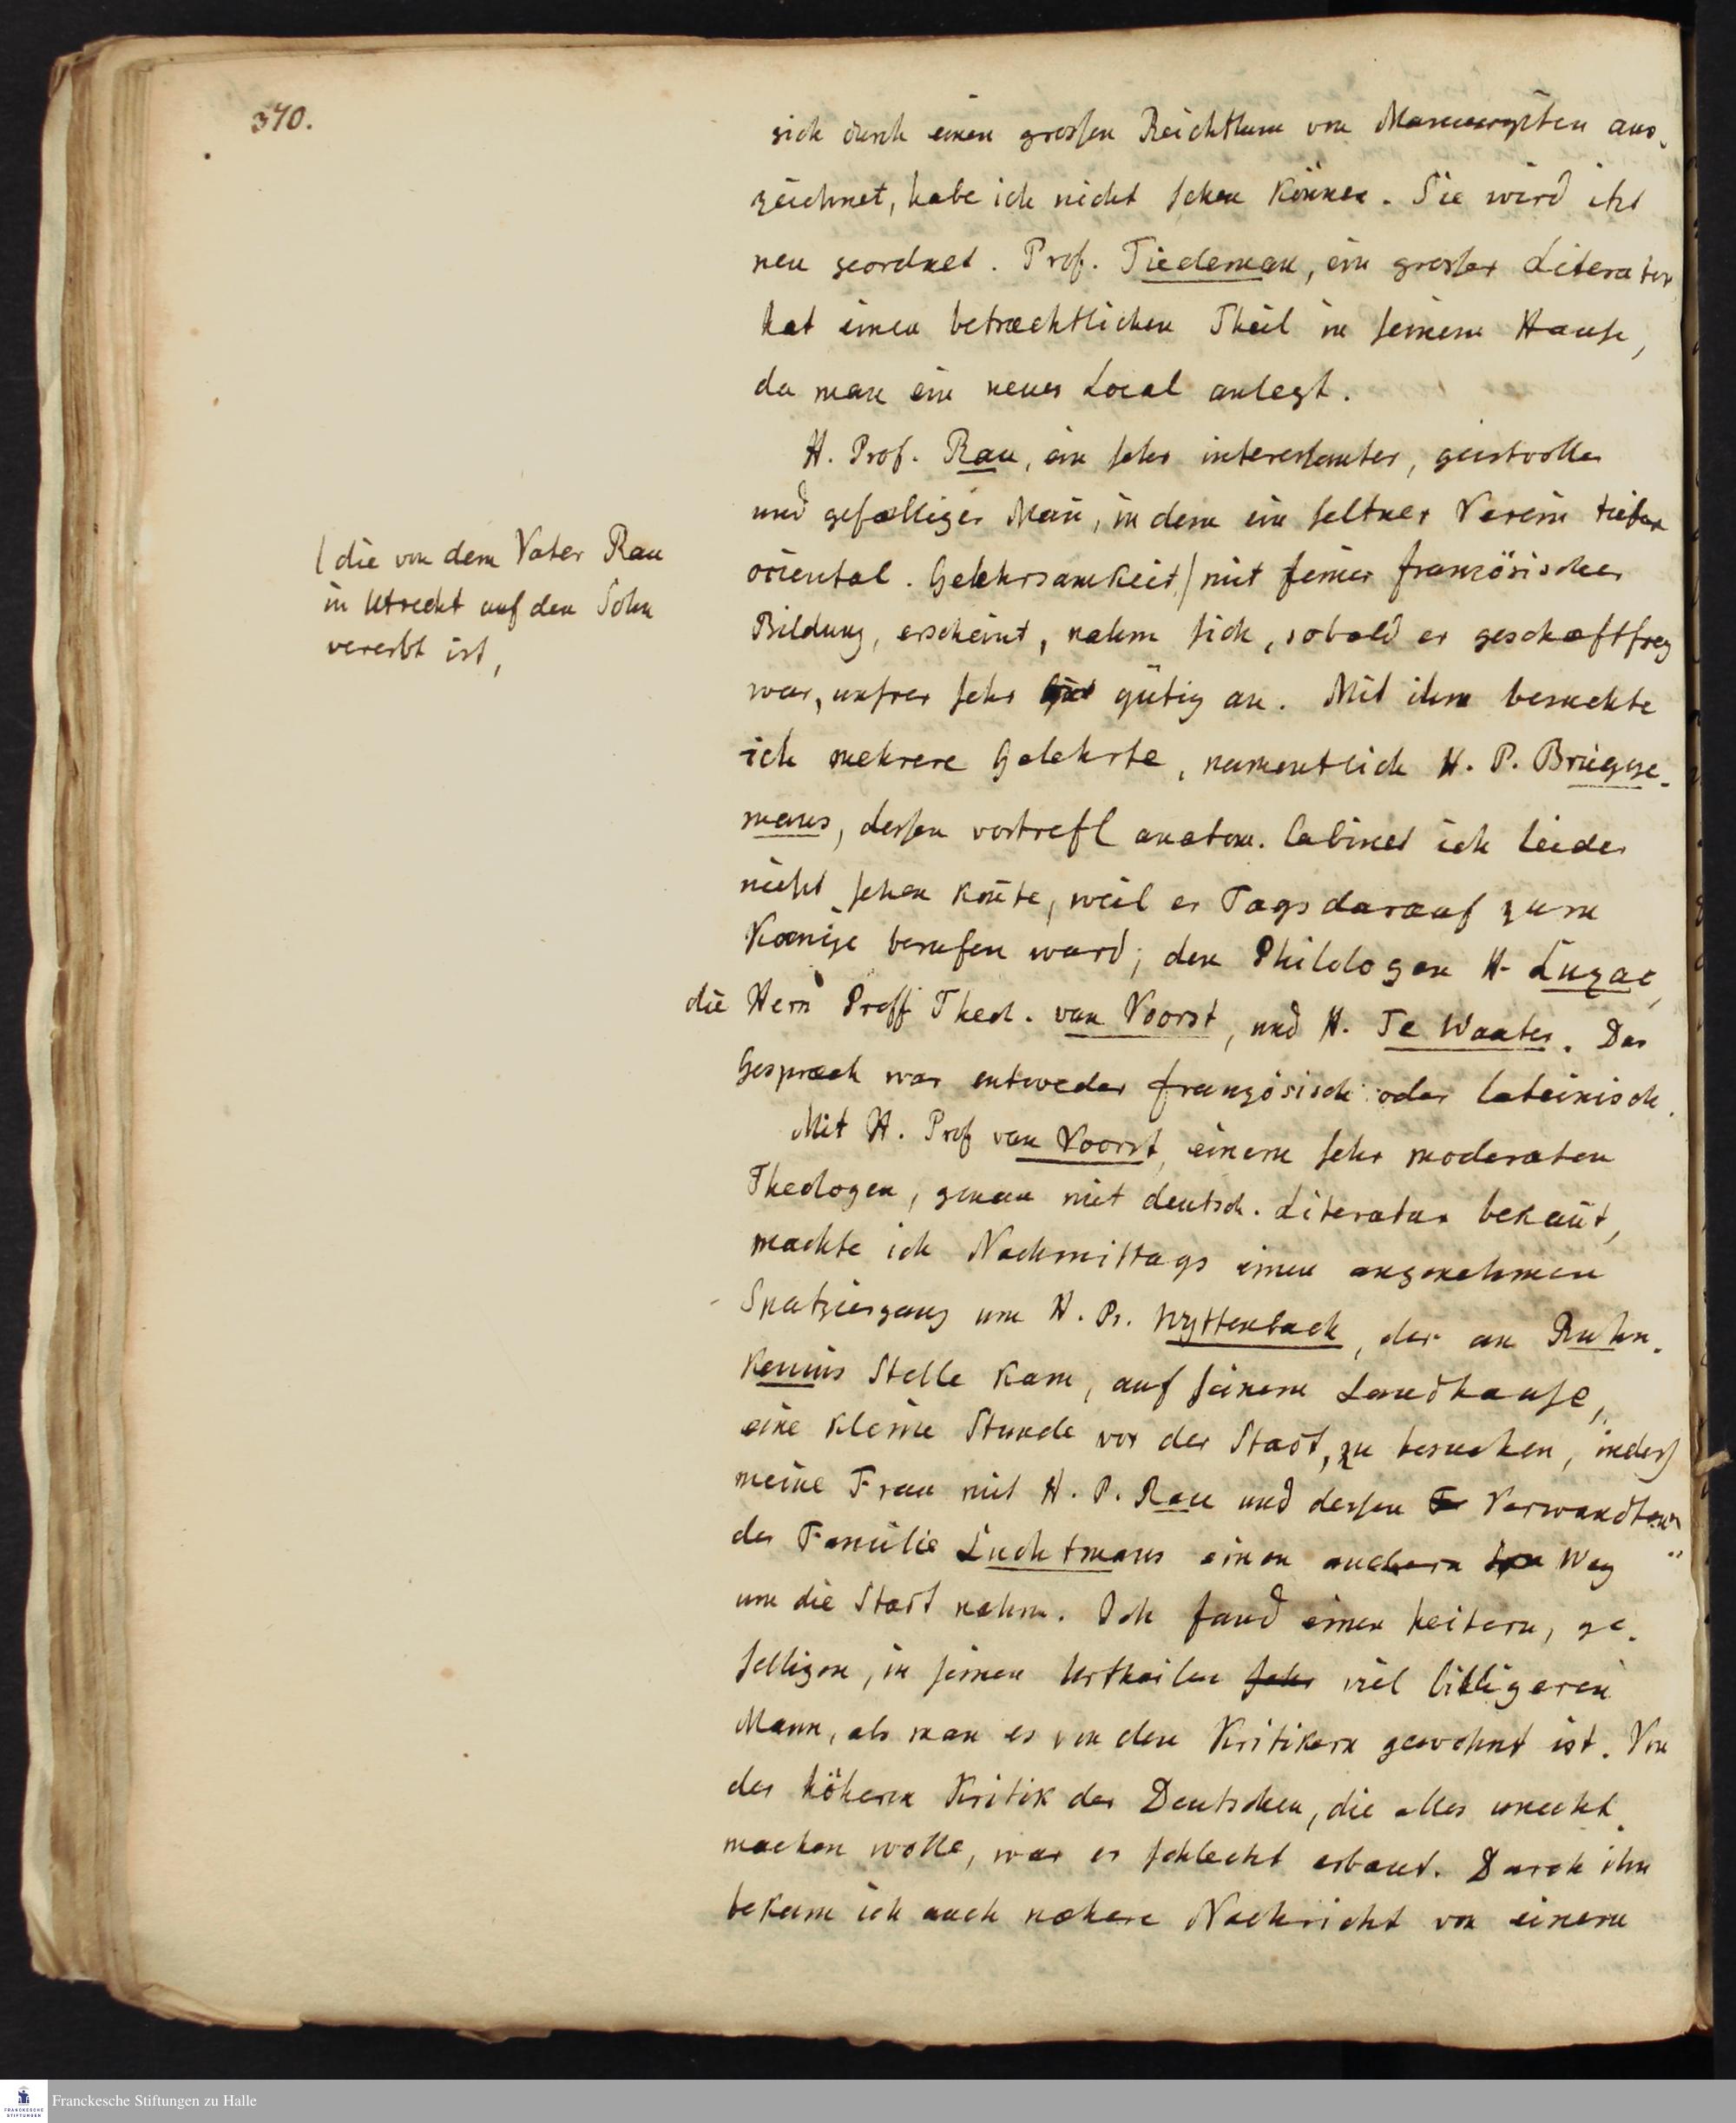 370.
sich durch einen grossen Reichthum von Manuscripten aus-
zeichnet, habe ich nicht sehen können. Sie wird itzt
neu geordnet. Prof. Tiedeman, ein grosser Literator,
hat einen betraechtlichen Theil in seinem Hause,
da man ein neues Local anlegt.
H. Prof. Rau, ein sehr interessanter, geistvoller
und gefaelliger Man̄, in dem ein seltner Verein tiefer
oriental. Gelehrsamkeit / mit feiner französischer
(die von dem Vater Rau
in Utrecht auf den Sohn
vererbt ist,
Bildung, erscheint, nahm sich, sobald er geschaeftfrey
war, unsrer sehr gütig an. Mit ihm besuchte
ich mehrere Gelehrte, namentlich H. P. Brugge-
mans, dessen vortrefl anatom. Cabinet ich leider
nicht sehen kon̄te, weil er Tags darauf zum
Koenige berufen ward; den Philologen H. Luzac,
die Hern̄ Proff Theol. van Voorst, und H. Te Waater. Das
Gespraech war entweder französisch oder lateinisch.
Mit H. Prof van Voorst, einem sehr moderaten
Theologen, genau mit deutsch. Literatur bekan̄t,
machte ich Nachmittags einen angenehmen
Spatziergang um H. Pr. Wyttenbach, der an Ruhn-
kenius Stelle kam, auf seinem Landhause,
eine kleine Stunde vor der Stadt, zu besuchen, indess
meine Frau mit H. P. Rau und dessen Verwandten
der Familie Luchtmans einen andern Weg
um die Stadt nahm. Ich fand einen heitern, ge-
selligen, in seinen Urtheilen sehr viel billigeren
Mann, als man es von den Kritikern gewohnt ist. Von
der höhern Kritik der Deutschen, die alles unecht
machen wolle, war er schlecht erbaut. Durch ihn
bekam ich auch nähere Nachricht von einem
Franckesche Stiftungen zu Halle
FRANCKESCHE
STIFTUNGEN